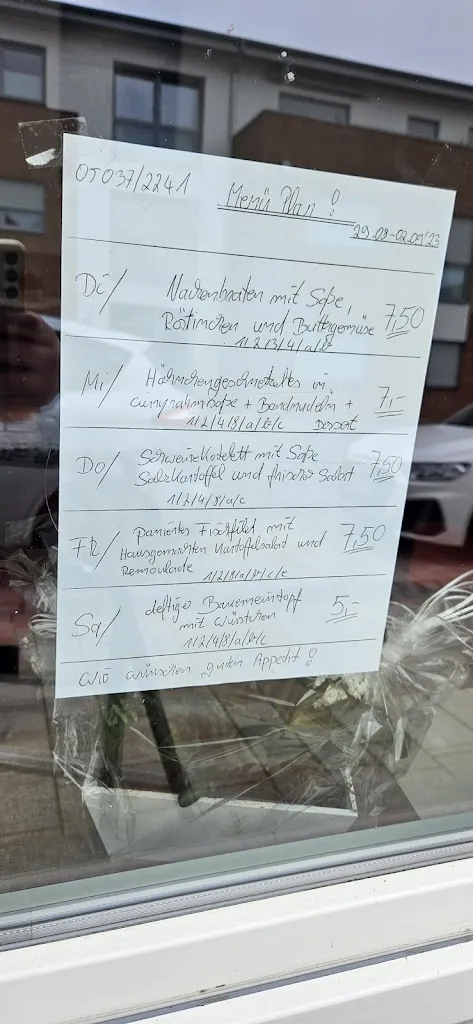 05037/2241
Menü Plan !
29.08-02.09'23
Di/ Nackenbraten mit Soße, 7,50
Röstinchen und Buttergemüse
1/2/3/4/a/b/c
Mi/ Hähnchengeschnetzeltes in 7,-
Curryrahmsoße + Bandnudeln +
1/2/4/8/a/b/c Dessert
Do/ Schweinekotelett mit Soße 7,50
Salzkartoffel und frischer Salat
1/2/4/8/a/c
FR/ paniertes Fischfilet mit 7,50
Hausgemachten Kartoffelsalat und
Remoulade 1/2/8/a/b/c/e
Sa/ deftiger Bauerneintopf 5,-
mit Würstchen
1/2/4/8/a/b/c
Wir wünschen guten Appetit !